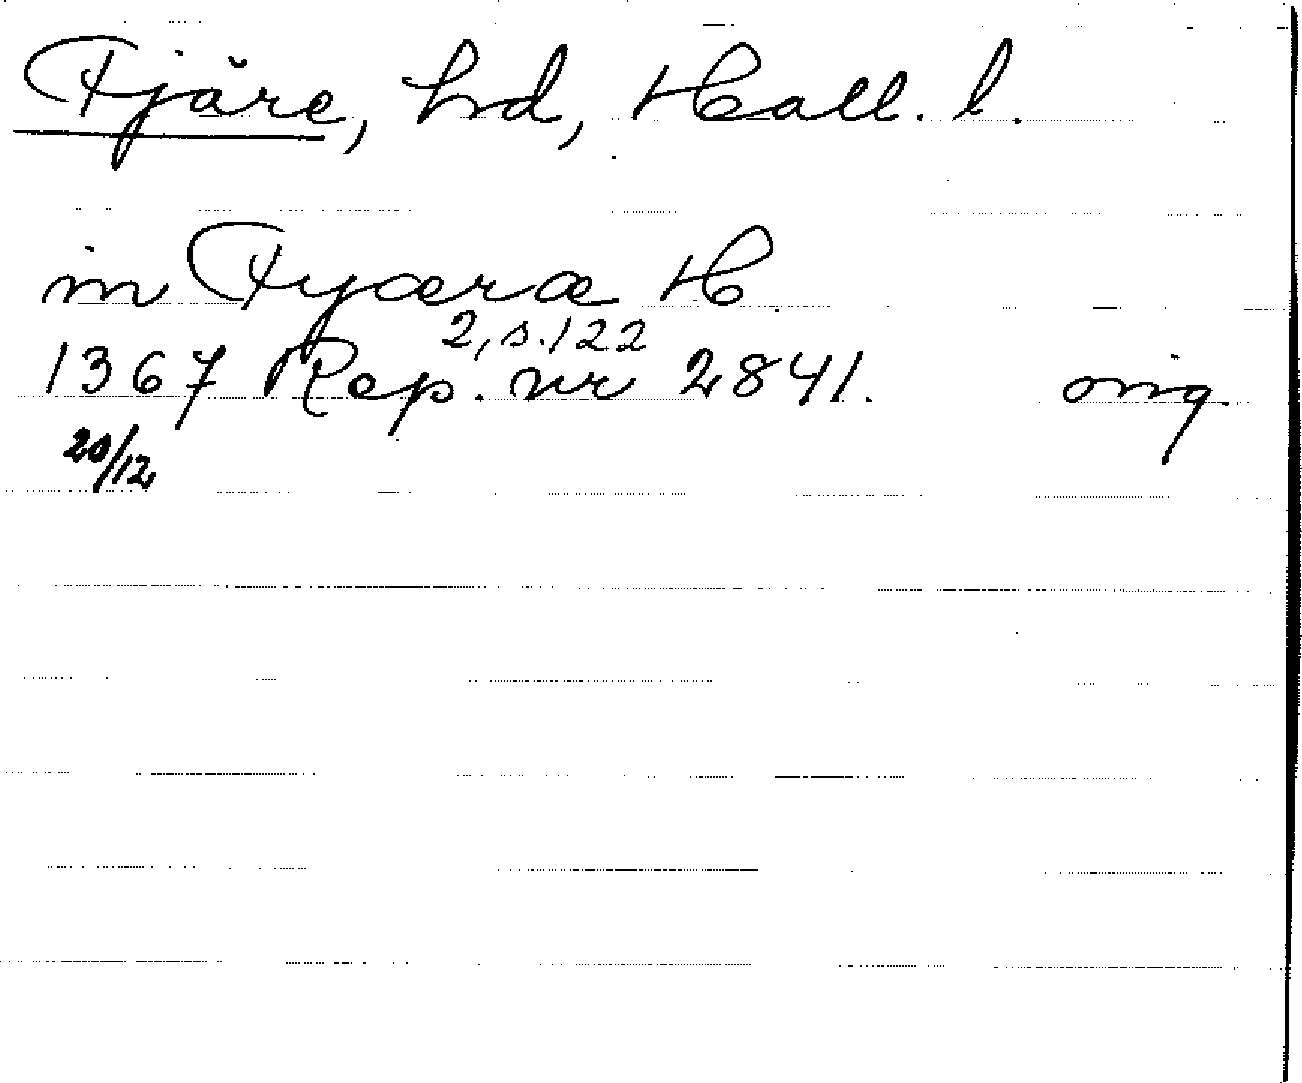 Fjäre, hd, Hall. l.
in Fyæræ H
2, s. 122
1367 Rep. nr 2841. orig.
20/12